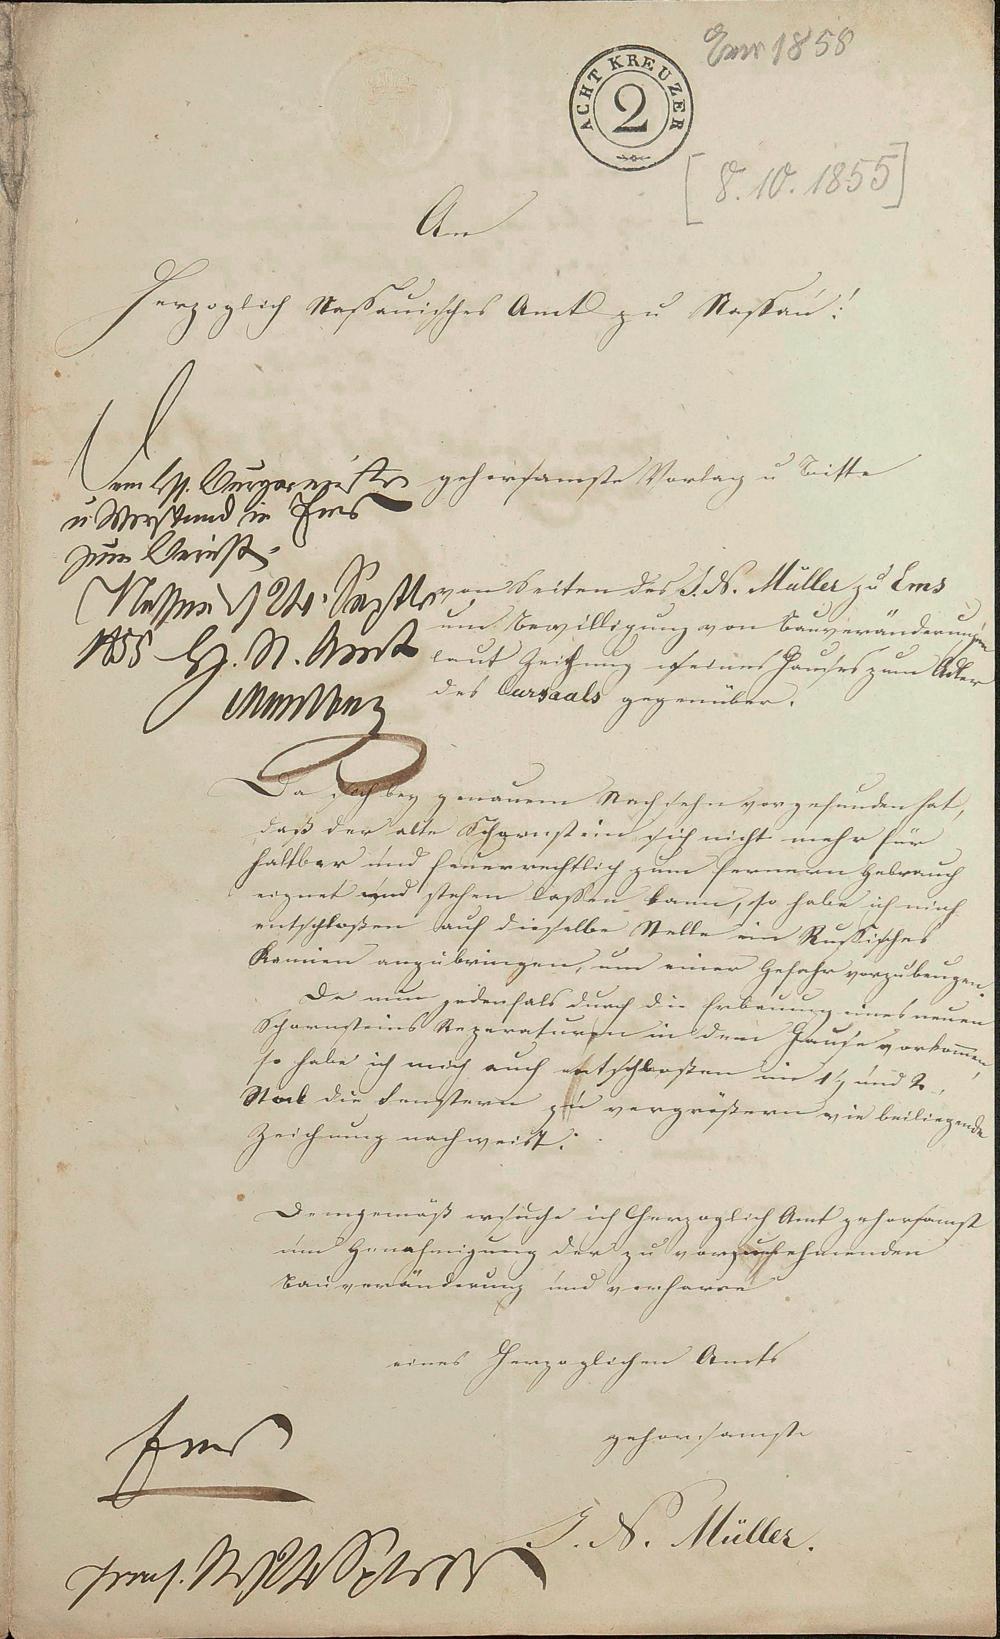 Ems 1858
ACHT KREUZER
2
[8.10.1855]
An
Herzoglich Nassauisches Amt zu Nassau!
gehorsamste Vorlag u Bitte
u Vorstand in Ems
zum Bericht.
von Seiten des J. N. Müller zu Ems
um Bewilligung von Bauveränderungen
laut Zeichnung seines Hauses zum Adler
des Cursaals gegenüber.
1855 Hz. N. Amt
Da sich bey genauem Nachsehn vorgefunden hat,
daß der alte Schornstein sich nicht mehr für
haltbar und feuerrechtlich zum fernern Gebrauch
eignet und stehen lassen kann, so habe ich mich
entschloßen auf dieselbe Stelle ein Russisches
Kamien anzubringen, um einer Gefahr vorzubeugen.
Da nun jedenfals durch die Erbauung eines neuen
Schornsteins Reparaturen in dem Hause vorkommen,
so habe ich mich auch entschloßen im 1 und 2,
Stock die Fenstern zu vergrößern wie beiliegende
Zeichnung nachweist.
Demgemäß ersuche ich Herzoglich Amt gehorsamst
um Genehmigung der zu vorzunehmenden
Bauveränderung und verharre
eines Herzoglichen Amts
gehorsamste
Ems
J. N. Müller.